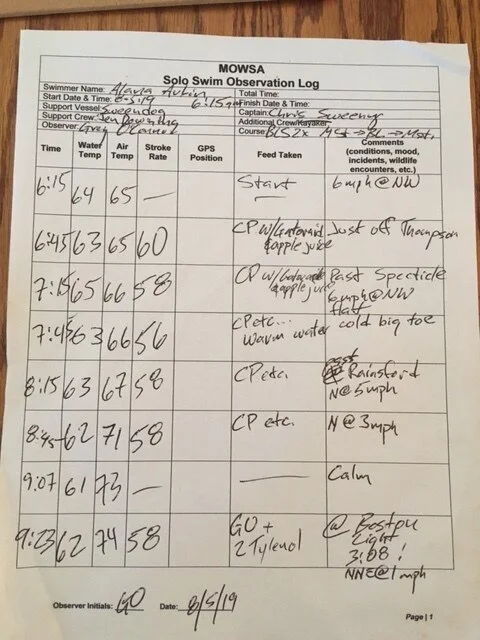 MOWSA
Solo Swim Observation Log
Swimmer Name: Alaria Total Time:
Start Date & Time: 8-5-19 6:15am Finish Date & Time:
Support Vessel: Sweendog Captain: Chris Sweeney
Support Crew: Jen Downing Additional Crew/Kayaker:
Observer: Greg O'Connor Course: BLS2x → BL →
Time Water Temp Air Temp Stroke Rate GPS Position Feed Taken Comments (conditions, mood, incidents, wildlife encounters, etc.)
6:15 64 65 — Start — 6mph@NW
6:45 63 65 60 CP w/Gatoraid & apple juice Just off Thompson
7:15 65 66 58 CP w/Gatorade & apple juice Past Specticle 6mph@NW flat
7:45 63 66 56 CP etc... Warm water cold big toe
8:15 63 67 58 CP etc. past Rainsford N@5mph
8:45 62 71 58 CP etc. N@3mph
9:07 61 73 — — Calm
9:23 62 74 58 GU + 2 Tylenol @ Boston Light 3:08! NNE@1mph
Observer Initials: GO Date: 8/5/19
Page | 1